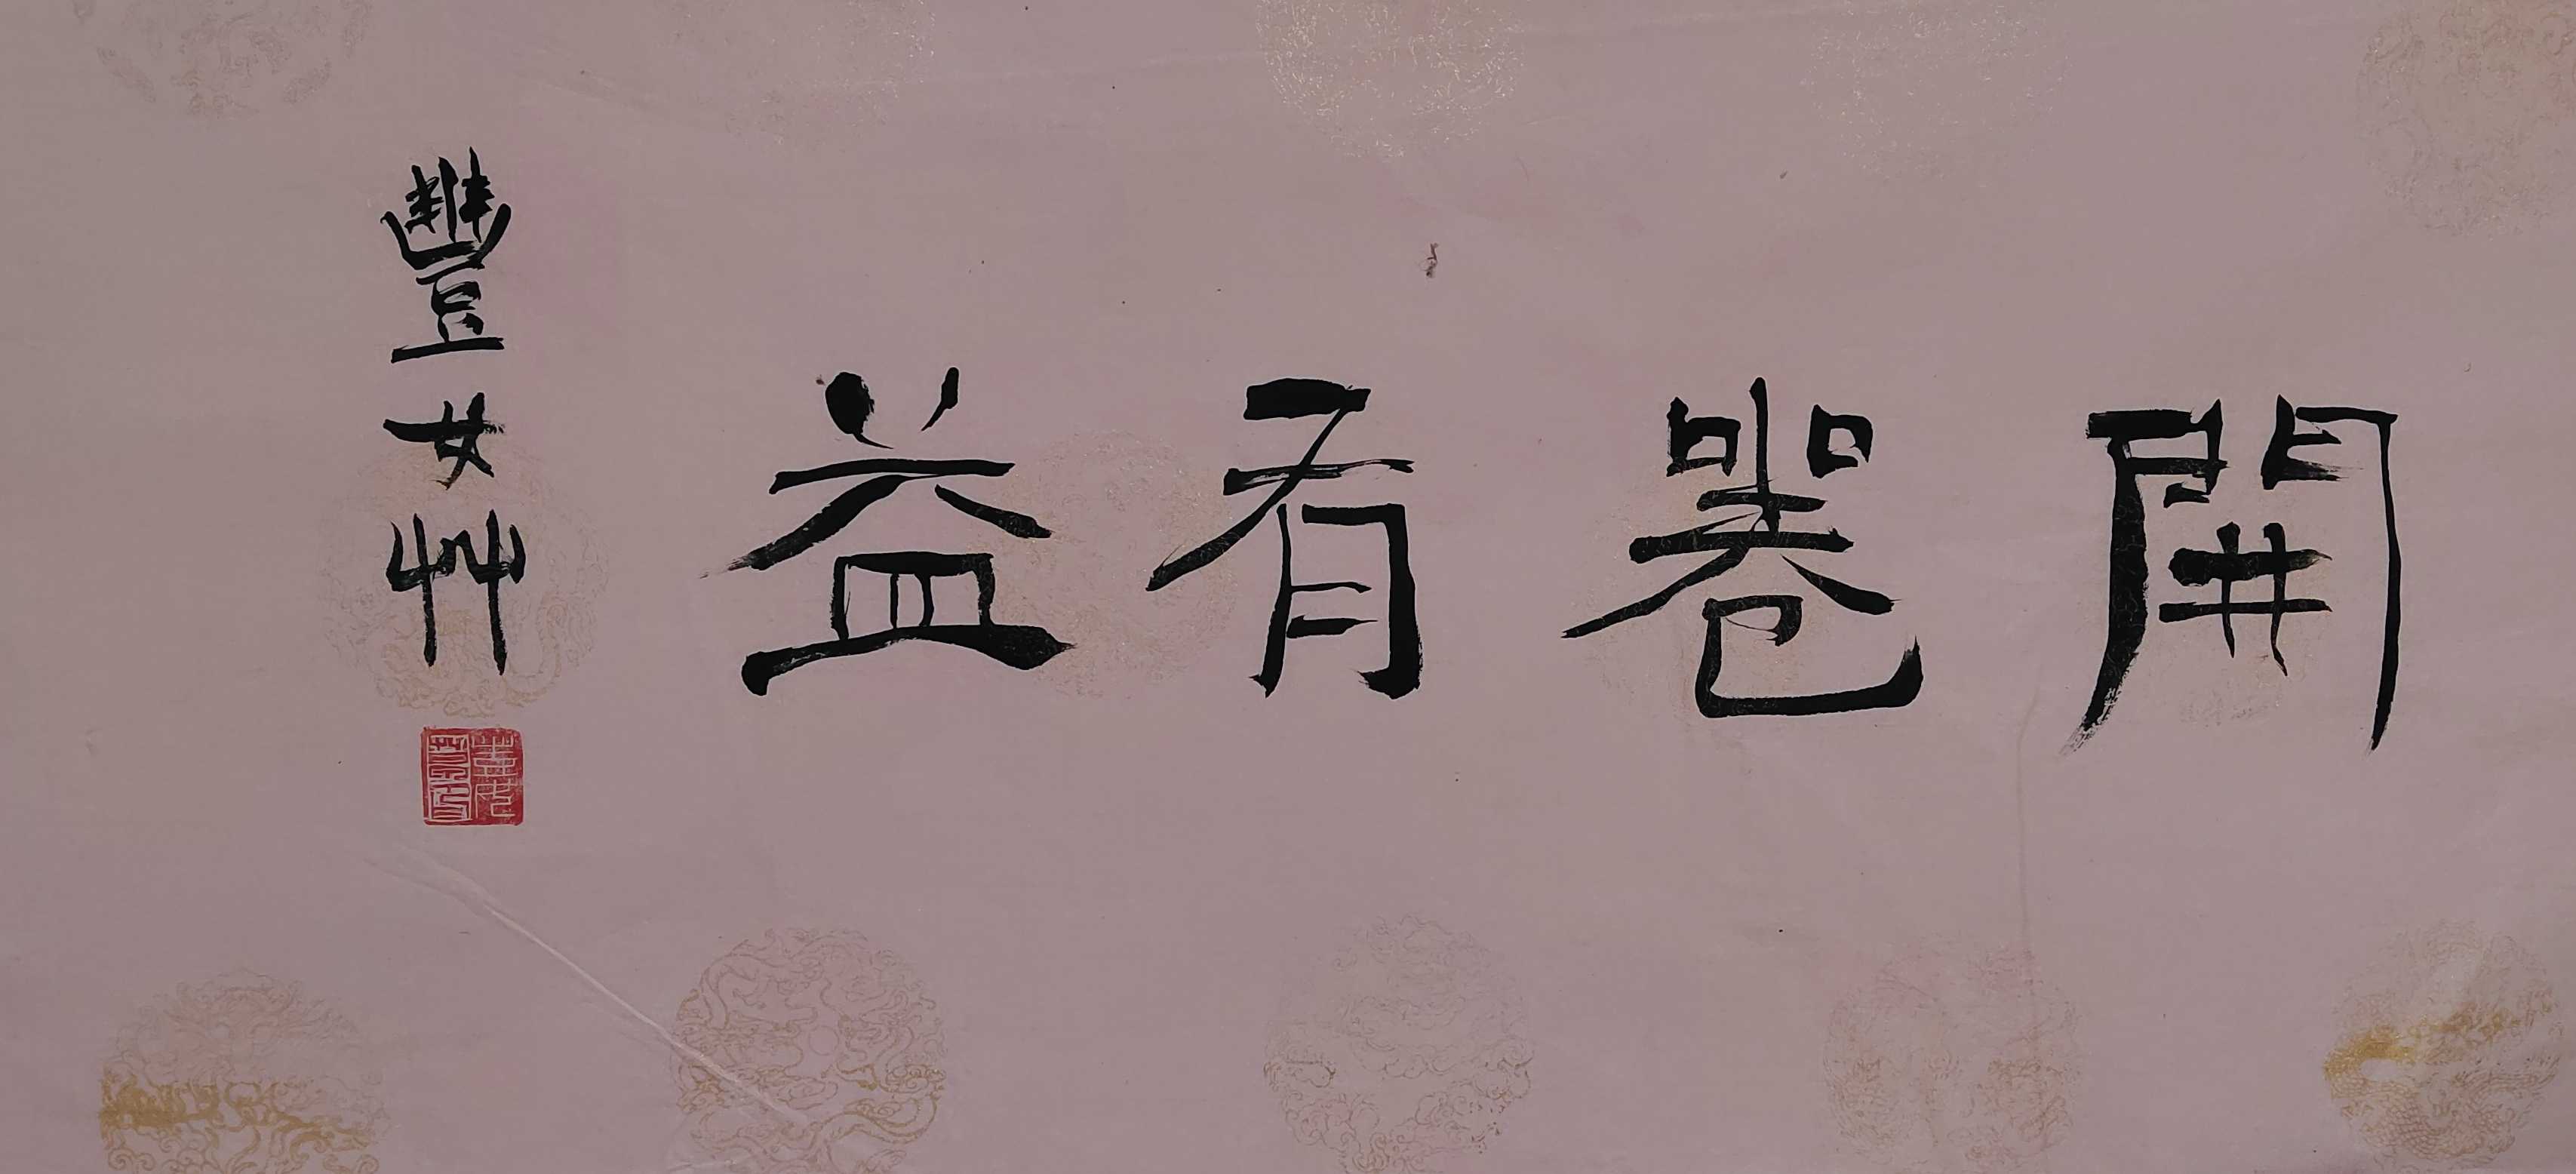 開卷有益
豐女艸